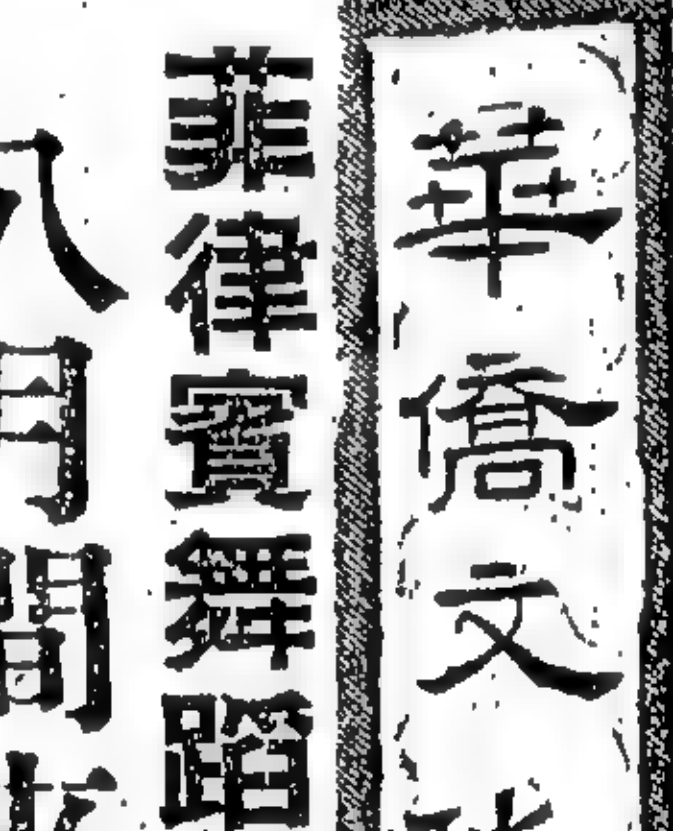 華僑文
菲律賓舞蹈
八月間